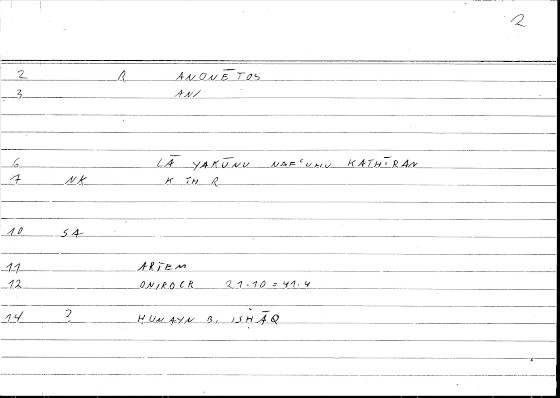 2
2 R ANONĒTOS
3 AN/
6 LĀ YAKŪNU NAFʿUHU KATHĪRAN
7 NK K TH R
10 SA
11 ARTEM
12 ONIROCR 21.10 = 41.4
14 ? ḤUNAYN B. ISḤĀQ